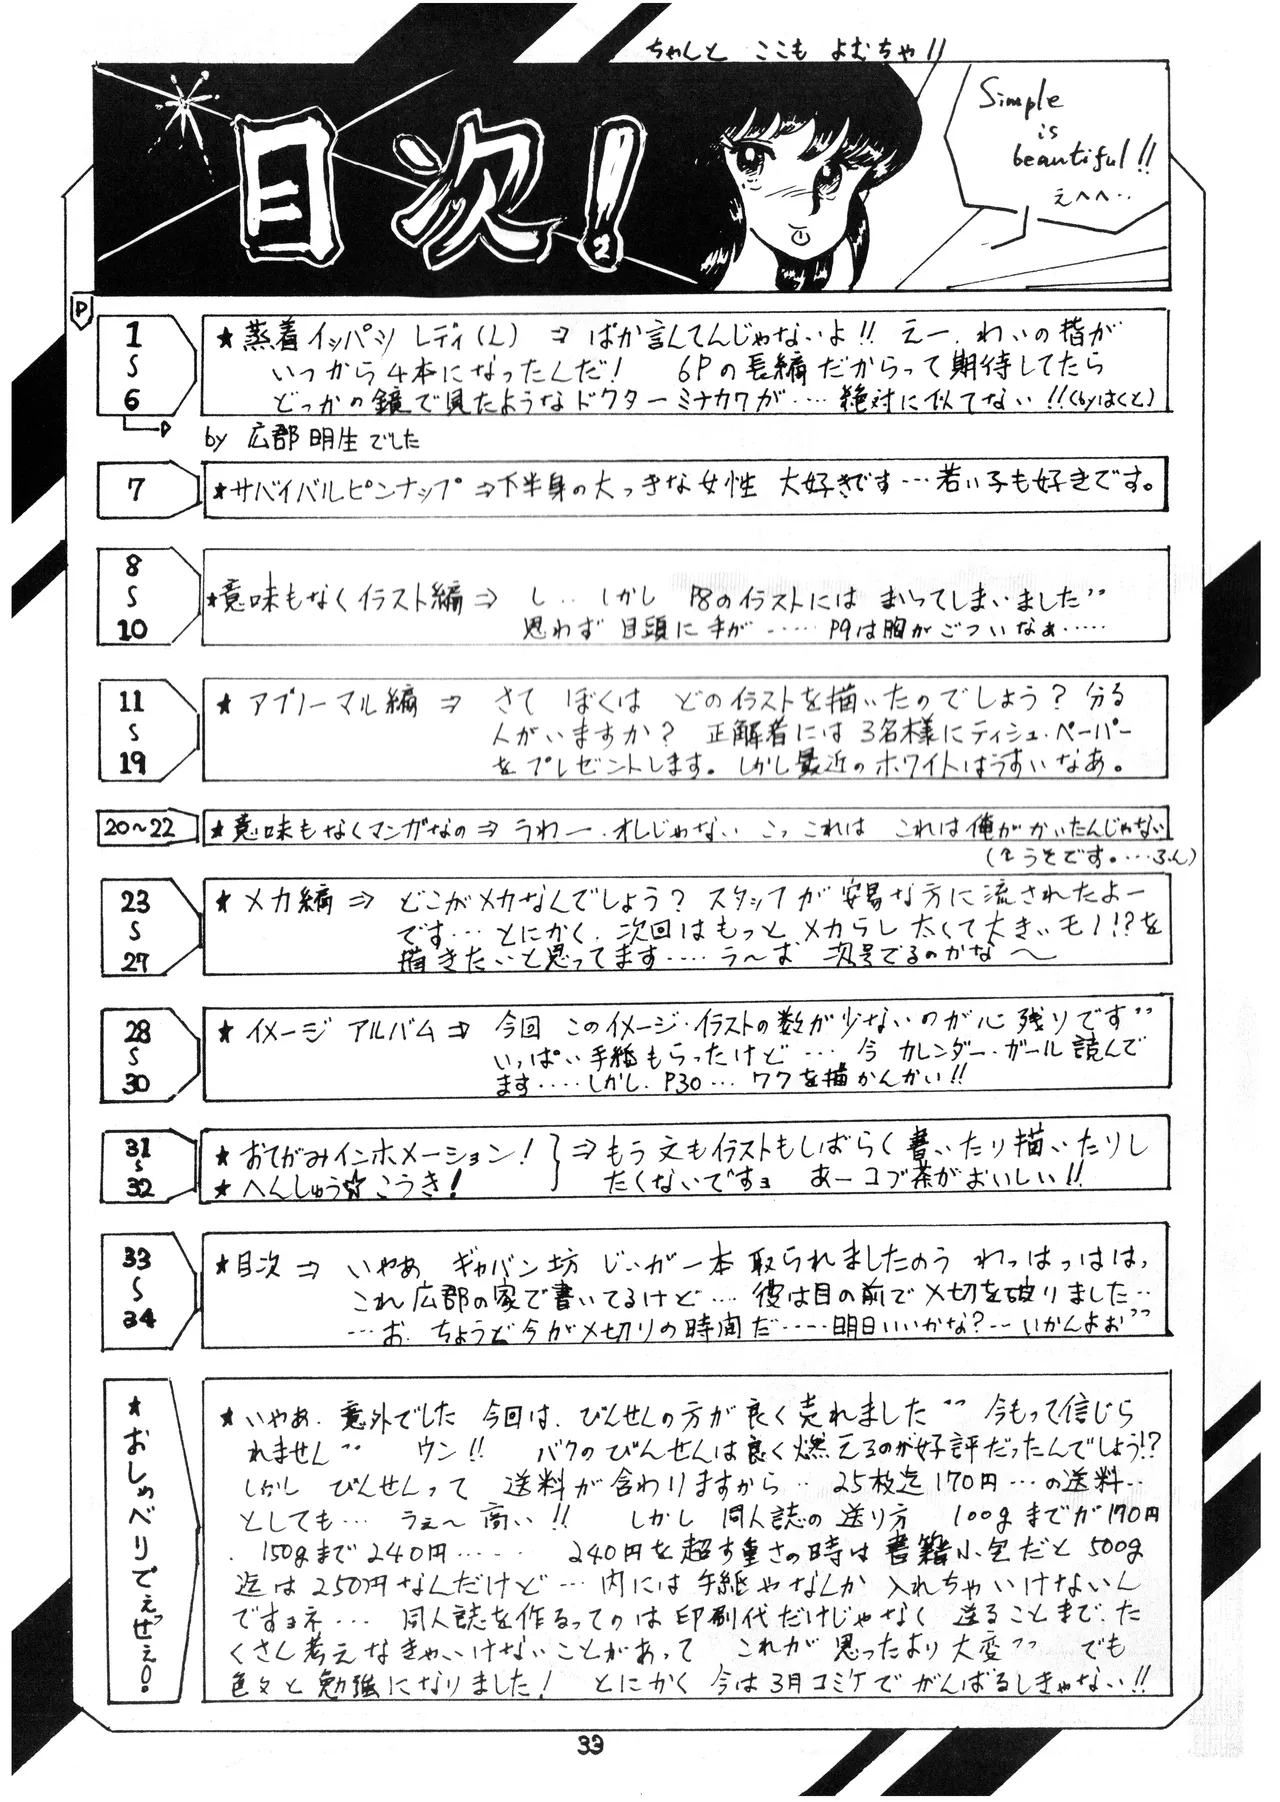 ちゃんと ここも よむちゃ!!
目次!
2
Simple
is
beautiful!!
えへへ‥
P
1
〜
6
★蒸着イッパツ レディ(L) ⇒ ばか言ってんじゃないよ!! えー.わいの指が
いつから4本になったんだ! 6Pの長編だからって期待してたら
どっかの鏡で見たようなドクターミナカワが‥‥絶対に似てない!!(byはくと)
by 広郡 明生でした
7
★サバイバルピンナップ⇒下半身の大っきな女性 大好きです…若い子も好きです。
8
〜
10
★意味もなくイラスト編⇒ し‥しかし P8のイラストには まいってしまいました〃
思わず 目頭に手が……P9は胸がごついなぁ……
11
〜
19
★アブノーマル編⇒ さて ぼくは どのイラストを描いたのでしょう? 分る
人がいますか? 正解者には 3名様にティシュ・ペーパー
をプレゼントします。しかし最近のホワイトはうすいなあ。
20〜22
★意味もなくマンガなの⇒うわー.オレじゃない こっこれは これは俺がかいたんじゃない
(↑うそです。…ふん)
23
〜
27
★メカ編⇒ どこがメカなんでしょう? スタッフが安易な方に流されたよー
です…とにかく.次回はもっと メカらしく太くて大きいモノ!?を
描きたいと思ってます‥‥う〜む 次号でるのかな〜
28
〜
30
★イメージ アルバム⇒ 今回 このイメージ・イラストの数が少ないのが心残りです〃
いっぱい手紙もらったけど…今 カレンダー・ガール読んで
ます‥‥しかし.P30…ワクを描かんかい!!
31
〜
32
★おてがみインホメーション!
★へんしゅう☆こうき!
⇒もう文もイラストもしばらく書いたり描いたりし
たくないですョ あーコブ茶がおいしい!!
33
〜
34
★目次⇒ いやあ ギャバン坊 じいが一本取られましたのう わっはっはは,
これ広郡の家で書いてるけど…彼は目の前で〆切を破りました‥
…お.ちょうど今が〆切りの時間だ‥‥明日いいかな?‥いかんよぉ〃
★おしゃべりでぇぜぇ!
★いやあ.意外でした 今回は.びんせんの方が良く売れました〃 今もって信じら
れません〃 ウン!! バクのびんせんは良く燃えるのが好評だったんでしょう!?
しかし びんせんって 送料が含わりますから‥25枚迄170円…の送料‥
としても…うぇ〜高い!! しかし 同人誌の 送り方 100gまでが170円
.150gまで240円…… 240円を超す重さの時は書籍小包だと500g
迄は250円なんだけど…内には手紙やなんか 入れちゃいけないん
ですョネ… 同人誌を作るってのは印刷代だけじゃなく 送ることまで.た
くさん考えなきゃいけないことがあって これが 思ったより大変〃 でも
色々と勉強になりました! とにかく 今は3月コミケで がんばるしきゃない!!
33